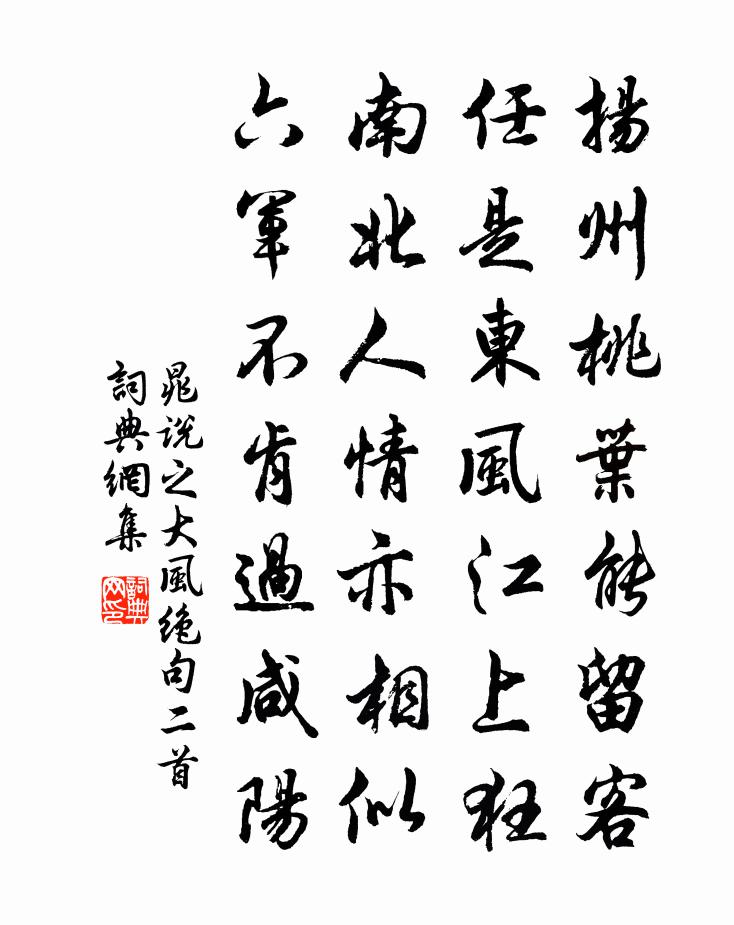 揚州桃葉能留客
任是東風江上狂
南北人情亦相似
六軍不肯過咸陽
晁说之大風绝句二首
詞典網集
詞典网印